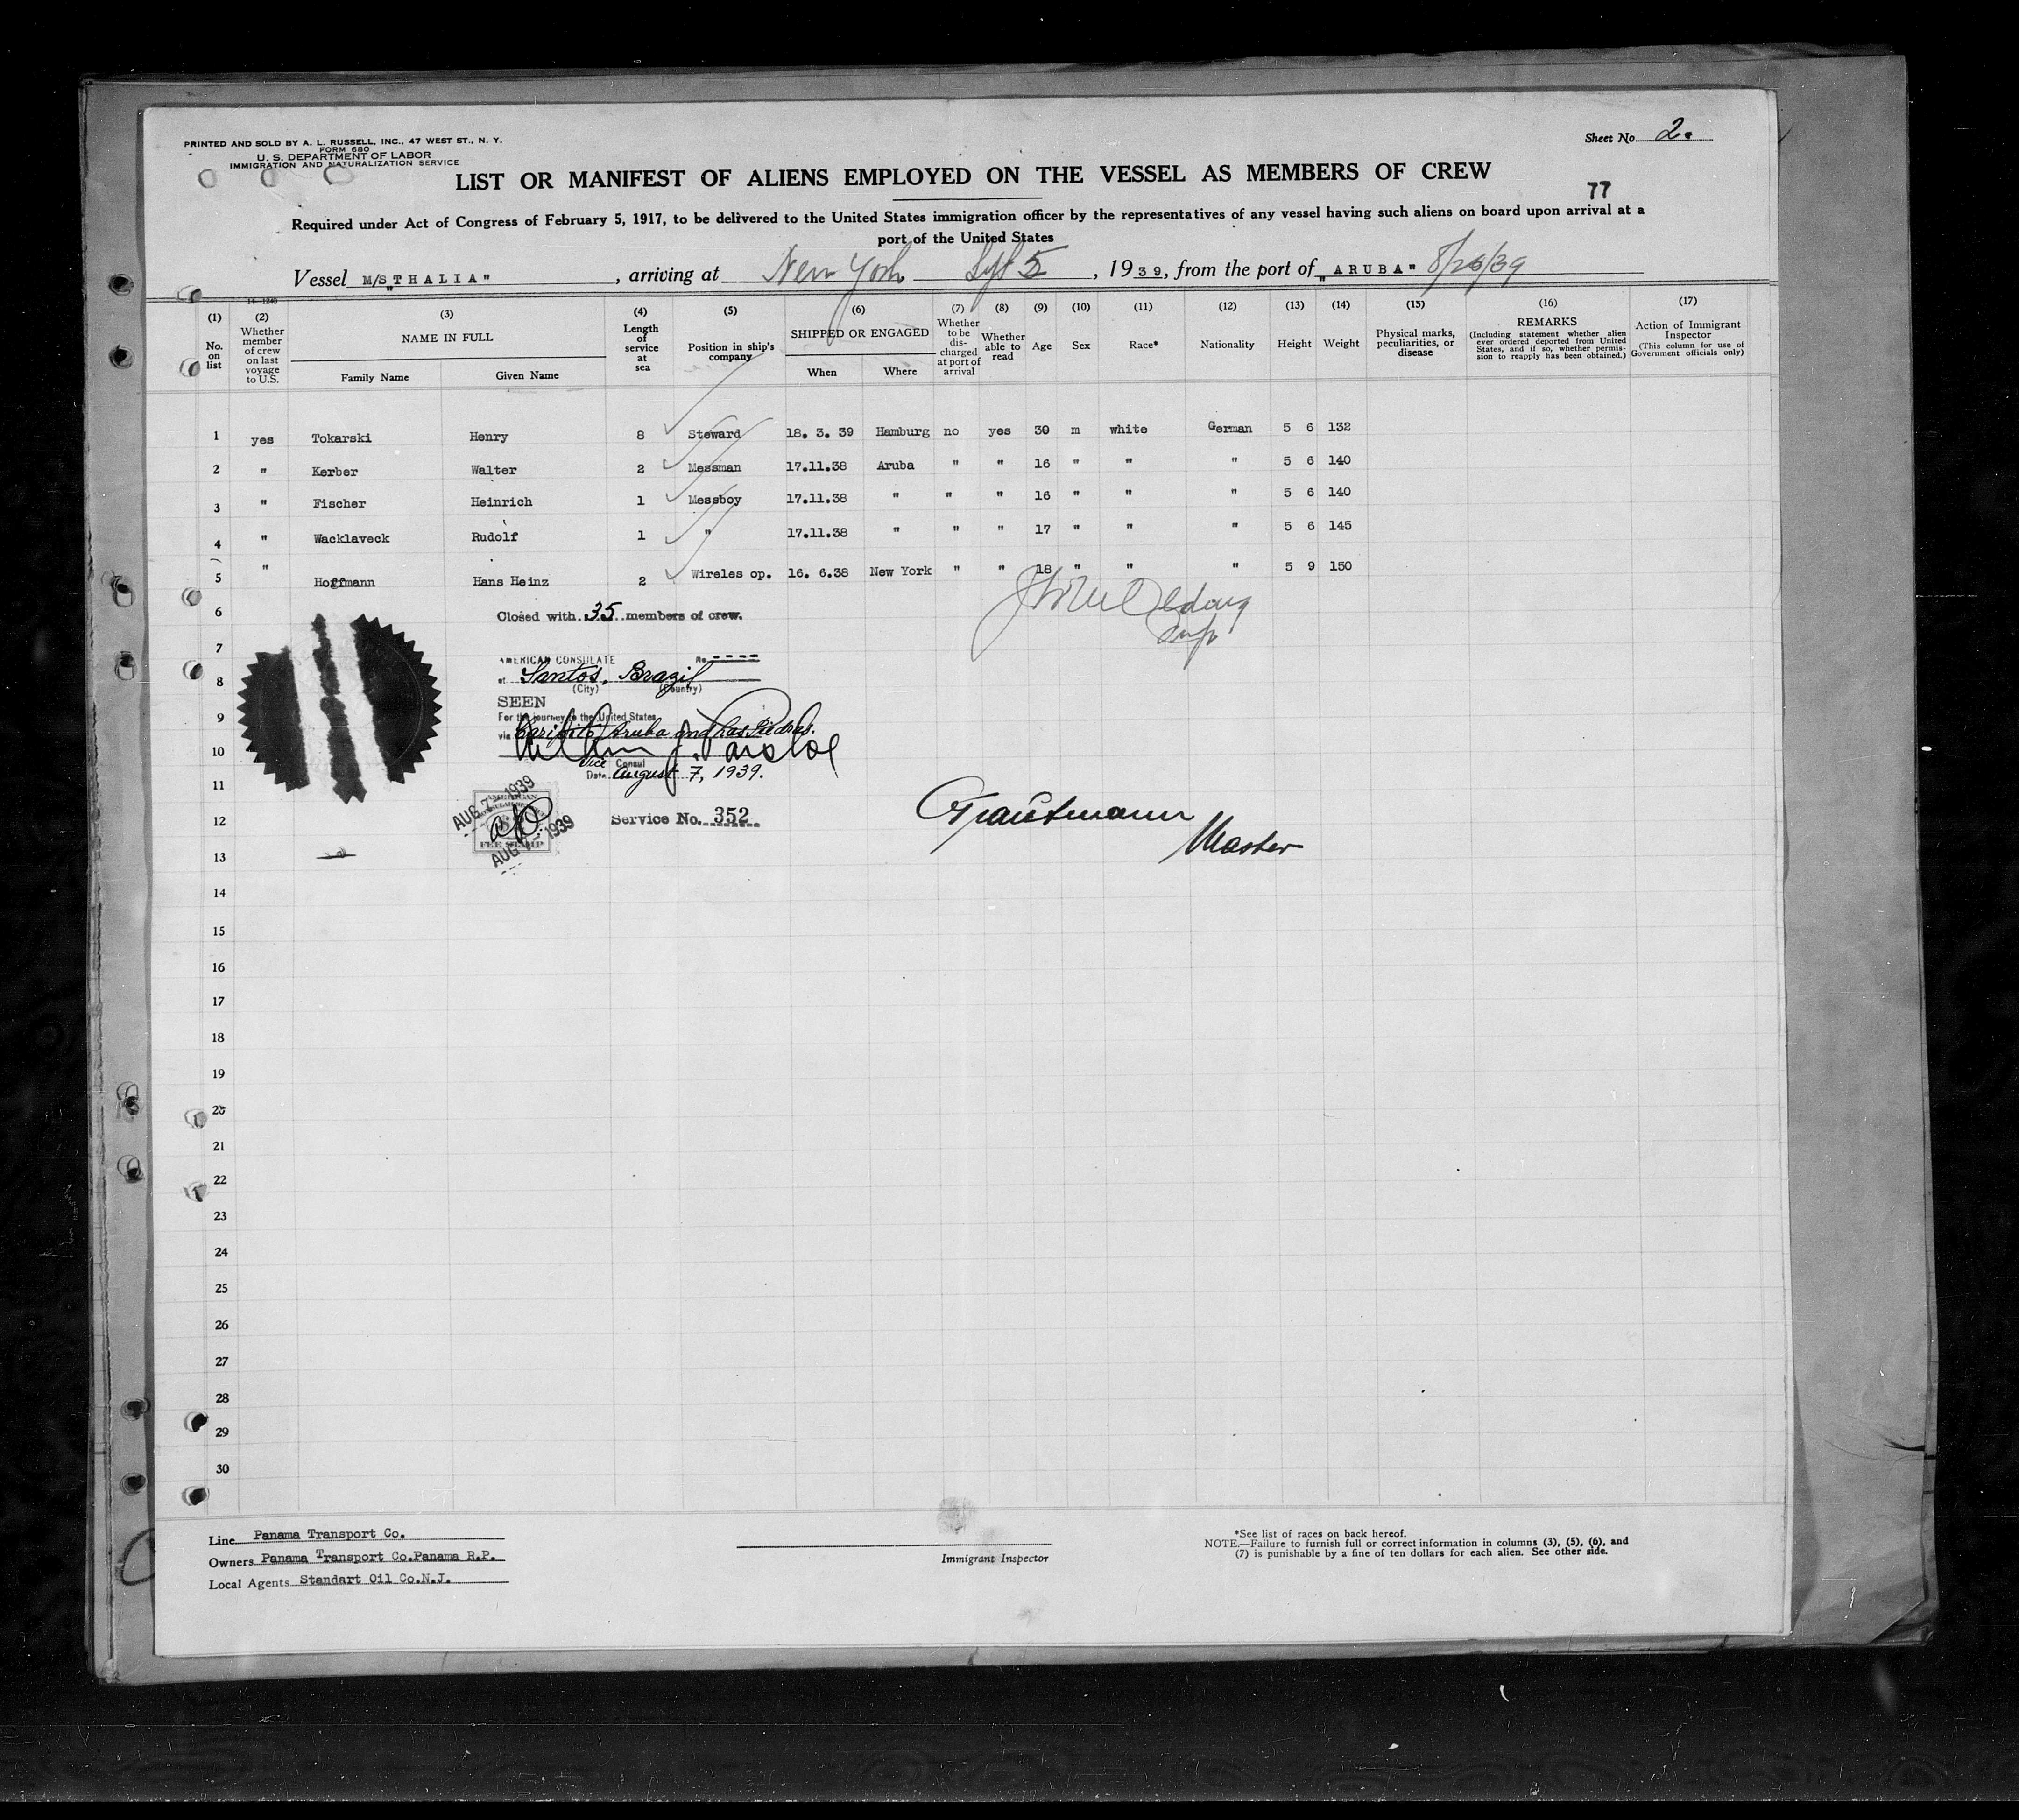 PRINTED AND SOLD BY A. L. RUSSELL, INC., 47 WEST ST., N. Y.
FORM 680
U. S. DEPARTMENT OF LABOR
IMMIGRATION AND NATURALIZATION SERVICE
Sheet No. 2.
LIST OR MANIFEST OF ALIENS EMPLOYED ON THE VESSEL AS MEMBERS OF CREW
77
Required under Act of Congress of February 5, 1917, to be delivered to the United States immigration officer by the representatives of any vessel having such aliens on board upon arrival at a
port of the United States
Vessel M/S "THALIA", arriving at New York Sept 5, 1939, from the port of "ARUBA" 8/26/39
14-1240
(1) No. on list
(2) Whether member of crew on last voyage to U.S.
(3) NAME IN FULL Family Name Given Name
(4) Length of service at sea
(5) Position in ship's company
(6) SHIPPED OR ENGAGED When Where
(7) Whether to be discharged at port of arrival
(8) Whether able to read
(9) Age
(10) Sex
(11) Race*
(12) Nationality
(13) Height
(14) Weight
(15) Physical marks, peculiarities, or disease
(16) REMARKS (Including statement whether alien ever ordered deported from United States, and if so, whether permission to reapply has been obtained.)
(17) Action of Immigrant Inspector (This column for use of Government officials only)
1 yes Tokarski Henry 8 Steward 18. 3. 39 Hamburg no yes 30 m white German 5 6 132
2 " Kerber Walter 2 Messman 17.11.38 Aruba " " 16 " " " 5 6 140
3 " Fischer Heinrich 1 Messboy 17.11.38 " " " 16 " " " 5 6 140
4 " Wacklaveck Rudolf 1 " 17.11.38 " " " 17 " " " 5 6 145
5 " Hoffmann Hans Heinz 2 Wireles op. 16. 6.38 New York " " 18 " " " 5 9 150
6
Closed with 35 members of crew.
7
AMERICAN CONSULATE No ----
8
at Santos, Brazil
(City) (Country)
SEEN
9
For the journey to the United States
via Caripito, Aruba and Las Piedras.
10
Vice Consul
Date August 7, 1939.
11
AUG 7 - 1939
AMERICAN
12
Service No. 352
Trautmann
Master
FEE STAMP
AUG 7 - 1939
13
14
15
16
17
18
19
20
21
22
23
24
25
26
27
28
29
30
Line Panama Transport Co.
Owners Panama Transport Co.Panama R.P.
Local Agents Standart Oil Co.N.J.
Immigrant Inspector
*See list of races on back hereof.
NOTE.—Failure to furnish full or correct information in columns (3), (5), (6), and
(7) is punishable by a fine of ten dollars for each alien. See other side.